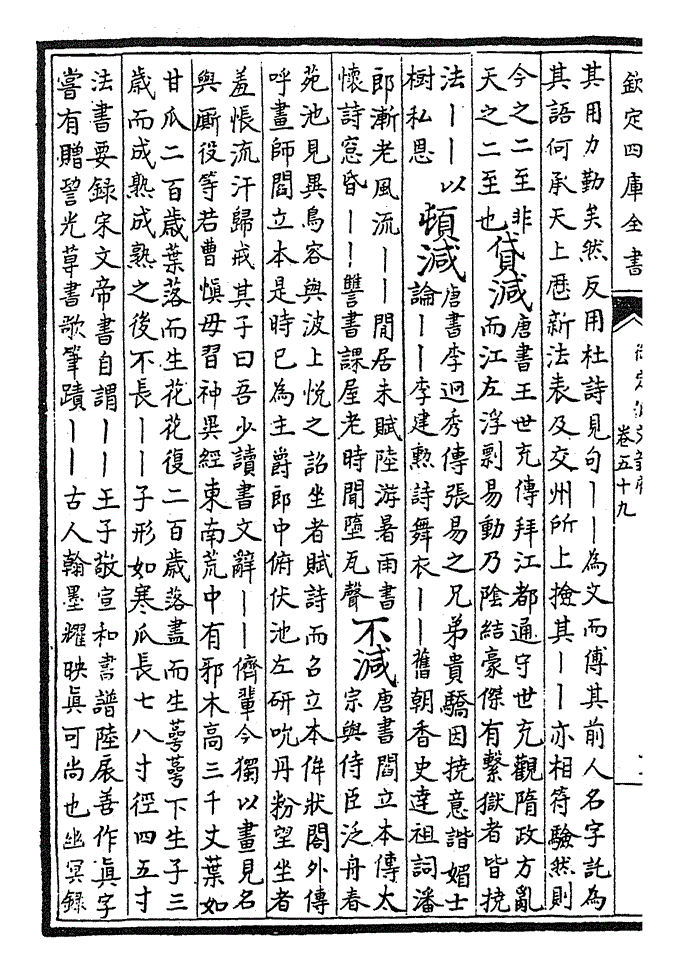 欽定四庫全書
卷五十九
其用力勤矣然反用杜詩見句丨丨為文而傅其前人名字託為
其語何承天上厯新法表及交州所上撿其丨丨亦相符驗然則
今之二至非
天之二至也
貸減
唐書王世充傳拜江都通守世充觀隋政方亂
而江左浮剽易動乃陰結豪傑有繫獄者皆撓
法丨丨以
樹私恩
頓減
唐書李迥秀傳張易之兄弟貴驕因撓意諧媚士
論丨丨李建勲詩舞衣丨丨舊朝香史達祖詞潘
郎漸老風流丨丨閒居未賦陸游暑雨書
懷詩窓昏丨丨讐書課屋老時聞墮瓦聲
不減
唐書閻立本傳太
宗與侍臣泛舟春
苑池見異鳥容與波上悅之詔坐者賦詩而召立本侔狀閣外傳
呼畫師閻立本是時已為主爵郎中俯伏池左研吮丹粉望坐者
羞悵流汗歸戒其子曰吾少讀書文辭丨丨儕輩今獨以畫見名
與厮役等若曹慎毋習神異經東南荒中有邪木高三千丈葉如
甘瓜二百歲葉落而生花花復二百歲落盡而生萼萼下生子三
歲而成熟成熟之後不長丨丨子形如寒瓜長七八寸徑四五寸
法書要錄宋文帝書自謂丨丨王子敬宣和書譜陸展善作真字
嘗有贈䛒光草書歌筆蹟丨丨古人翰墨耀映真可尚也幽冥錄